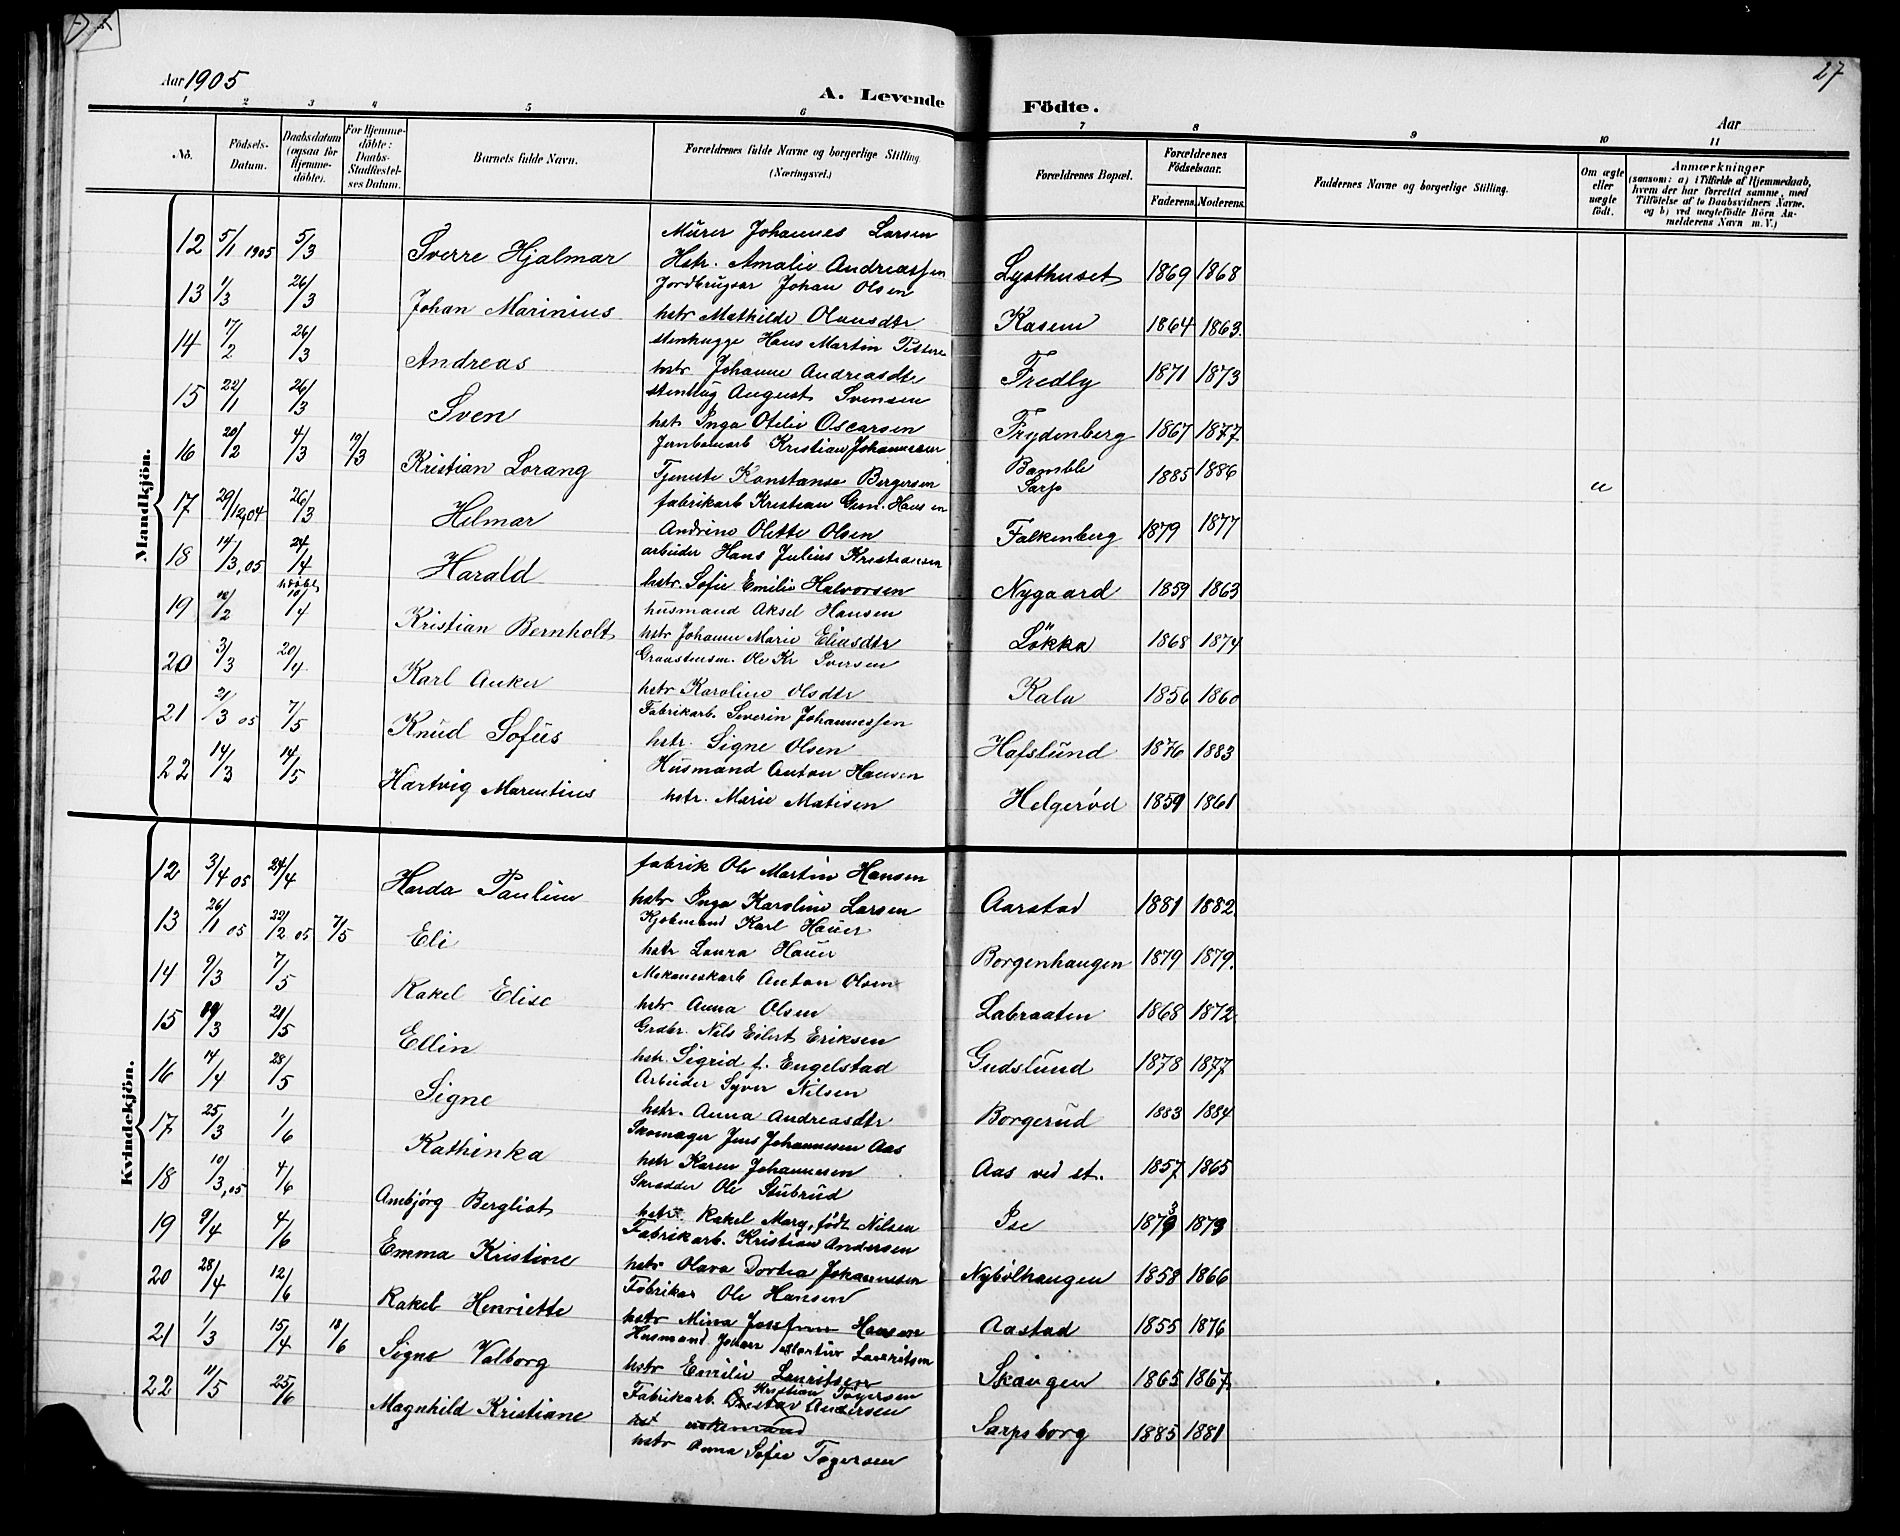 27
Aar 1905
A. Levende Födte.
Aar
1 2 3 4 5 6 7 8 9 10 11
No.
Födsels-Datum.
Daabsdatum (ogsaa for Hjemme-döbte).
For Hjemme-döbte: Daabs-Stadfæstel-ses Datum.
Barnets fulde Navn.
Forældrenes fulde Navne og borgerlige Stilling. (Næringsvei.)
Forældrenes Bopæl.
Forældrenes Födselsaar.
Faderens. Moderens.
Faddernes Navne og borgerlige Stilling.
Om ægte eller uægte födt.
Anmærkninger
(saasom: a) i Tilfælde af Hjemmedaab, hvem der har forrettet samme, med Tilföielse af to Daabsvidners Navne, og b) ved uægtefödte Börn An-melderens Navn m. V.)
Mandkjön.
12 5/1 1905 5/3 Sverre Hjalmar Murer Johannes Larsen
Hstr. Amalie Andreassen Lysthuset 1869 1868
13 1/3 26/3 Johan Marinius Jordbruger Johan Olsen
hstr Mathilde Olausdtr Kasem 1864 1863.
14 17/2 26/3 Andreas stenhugge Hans Martin Petters
hstr Johanne Andreasdtr Fredly 1871 1873
15 22/1 26/3 Sven stenhug August Svensen
hst Inga Otilie Oscarsen Frydenberg 1867 1877
16 20/2 4/3 19/3 Kristian Lorang Jernbanearb Kristian Johannessen
Tjeneste Konstanse Bergersen Bamble Sarp 1885 1886 u
17 29/12,04 26/3 Helmar fabrikarb Kristian Hansen
Andrine Olette Olsen Falkenberg 1879 1877
18 14/3,05 24/4 Harald arbeider Hans Julius Kristiansen
hstr. Sofie Emilie Halvorsen Nygaard 1859 1863
19 /2 10/4 Kristian Bernholt husmand Aksel Hansen
hstr Johanne Marie Eliasdtr Lökka 1868 1874
20 3/3 20/4 Karl Anker Graastensm. Ole Kr Iversen
hstr Karoline Olsdtr Kala 1856 1860
21 21/3 05 7/5 Knud Sofus Fabrikarb. Severin Johannessen
hstr. Signe Olsen Hafslund 1876 1883
22 14/3 14/5 Hartvig Marentius Husmand Anton Hansen
hstr. Marie Matisen Helgeröd 1859 1861
Kvindekjön.
12 3/4 05 24/4 Harda Pauline fabrik Ole Martin Hansen
hstr Inga Karoline Larsen Aarstad 1881 1882.
13 26/1 05 22/2 05 7/5 Eli Kjobmand Karl Hauer
hstr Laura Hauer Borgenhaugen 1879 1879.
14 9/3 7/5 Rakel Elise Mekaneskarb Anton Olsen
hstr Anna Olsen Labraaten 1868 1872.
15 19/3 28/5 Ellin Grdbr. Nils Eilert Eriksen
hstr. Sigrid f. Engelstad Gudslund 1878 1877
16 14/4 28/5 Signe Arbeider Syver Nilsen
hstr. Anna Andreasdtr Borgerud 1883 1884
17 25/3 1/6 Kathinka Skomager Jens Johannesen Aas
hstr Karen Johannesen Aas ved st. 1857 1865
18 10/3,05 4/6 Ambjörg Bergliot Skrædder Ole Stubrud
hstr. Rakel Marg, födt Nilsen Ise 1873 1873
19 9/4 4/6 Emma Kristine Fabrikarb. Kristian Andersen
hstr Olava Dortea Johannessen Nybölhaugen 1858 1866
20 28/4 12/6 Rakel Henriette Fabrikar Ole Hansen
hstr Mina Josefine Hansen Aastad 1855 1876
21 1/3 15/4 18/6 Signe Valborg Husmand Johan Martin Lauritsen
hstr Emilie Lauritsen Skaugen 1865 1867
22 11/5 25/6 Magnhild Kristiane Fabrikarb. Kristian Togersen
Andersen
hstr Anna Sofie Togersen Sarpsborg 1885 1881